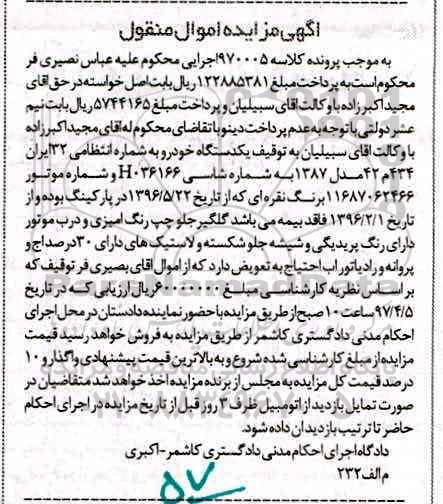 آگهی مزایده اموال منقول
به موجب پرونده کلاسه ۹۷۰۰۰۵اجرایی محکوم علیه عباس نصیری فر
محکوم است به پرداخت مبلغ ۱۲۲۸۸۵۳۸۱ریال بابت اصل خواسته در حق اقای
مجید اکبرزاده با وکالت اقای سبیلیان و پرداخت مبلغ ۵۷۴۴۱۶۵ریال بابت نیم
عشر دولتی با توجه به عدم پرداخت دینو با تقاضای محکوم له اقای مجید اکبرزاده
با وکالت اقای سبیلیان به توقیف یکدستگاه خودرو به شماره انتظامی ۳۲ایران
۴۳۴م۴۲مدل ۱۳۸۷به شماره شاسی H۰۳۶۱۶۶ و شماره موتور
۱۱۶۸۷۰۶۲۴۶۶برنگ نقره ای که از تاریخ ۱۳۹۶/۵/۲۲در پارکینگ بوده و از
تاریخ ۱۳۹۶/۲/۱ فاقد بیمه می باشد گلگیر جلو چپ رنگ امیزی و درب موتور
دارای رنگ پریدیگی و شیشه جلو شکسته و لاستیک های دارای ۳۰درصداج و
پروانه و رادیاتور اب احتیاج به تعویض دارد که از اموال اقای بصیری فر توقیف که
بر اساس نظریه کارشناسی مبلغ ۶۰۰۰۰۰۰۰ریال ارزیابی که در تاریخ
۹۷/۴/۵ساعت ۱۰صبح از طریق مزایده با حضور نماینده دادستان در محل اجرای
احکام مدنی دادگستری کاشمر از طریق مزایده به فروش خواهد رسید قیمت
مزایده از مبلغ کارشناسی شده شروع و به بالاترین قیمت پیشنهادی واگذار و ۱۰
درصد قیمت کل مزایده به مجلس از برنده مزایده اخذ خواهد شد متقاضیان در
صورت تمایل بازدید از اتومبیل ظرف ۲ روز قبل از تاریخ مزایده در اجرای احکام
حاضر تا ترتیب بازدیدان داده شود.
دادگاه اجرای احکام مدنی دادگستری کاشمر-اکبری
م الف ۲۳۲
۵۷